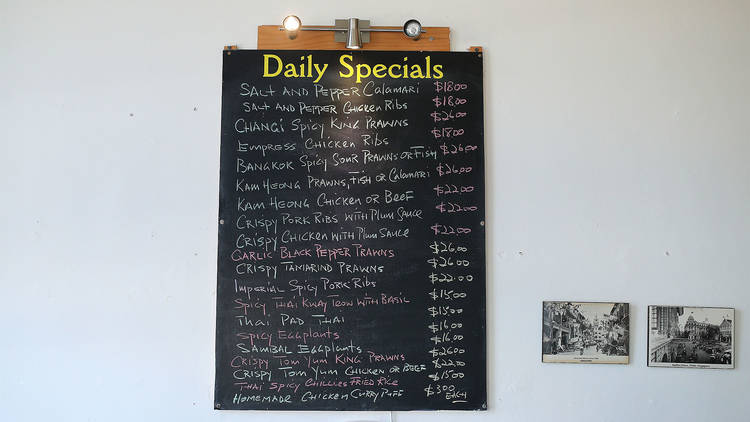 Daily Specials
SALT AND PEPPER CALAMARI $18.00
SALT AND PEPPER CHICKEN RIBS $18.00
CHANGI SPICY KING PRAWNS $26.00
EMPRESS CHICKEN RIBS $18.00
BANGKOK SPICY SOUR PRAWNS OR FISH $26.00
KAM HEONG PRAWNS, FISH OR CALAMARI $26.00
KAM HEONG CHICKEN OR BEEF $22.00
CRISPY PORK RIBS WITH PLUM SAUCE $22.00
CRISPY CHICKEN WITH PLUM SAUCE $22.00
GARLIC BLACK PEPPER PRAWNS $26.00
CRISPY TAMARIND PRAWNS $26.00
IMPERIAL SPICY PORK RIBS $22.00
SPICY THAI KWAY TEOW WITH BASIL $15.00
THAI PAD THAI $15.00
SPICY EGGPLANTS $16.00
SAMBAL EGGPLANTS $16.00
CRISPY TOM YUM KING PRAWNS $26.00
CRISPY TOM YUM CHICKEN OR BEEF $22.00
THAI SPICY CHILLIES FRIED RICE $15.00
HOMEMADE CHICKEN CURRY PUFF $3.00
EACH